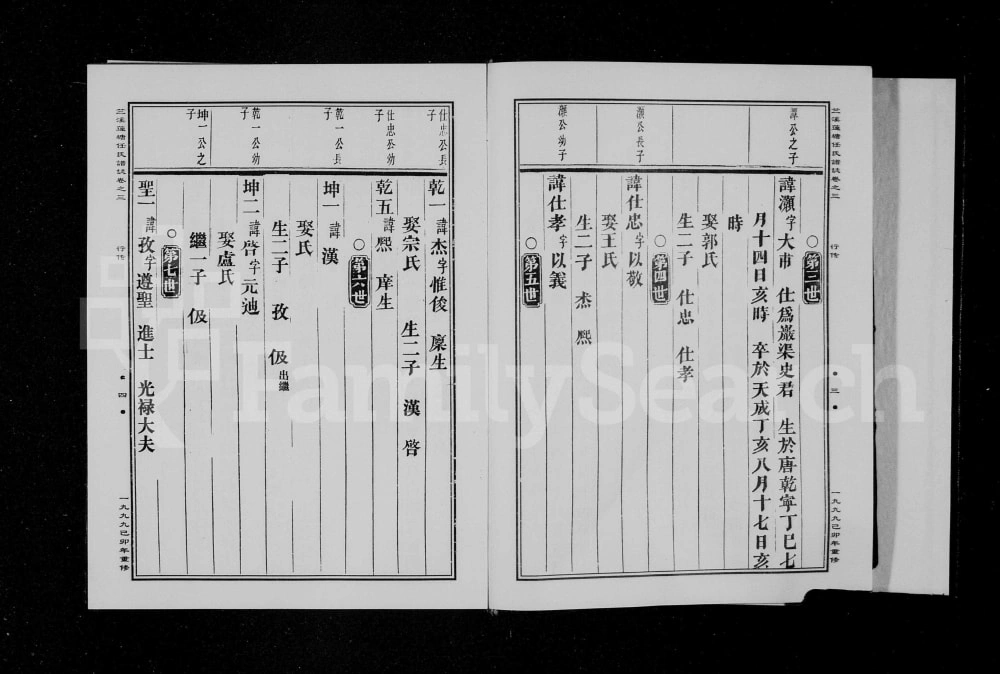 蘭溪蓮塘任氏譜誌卷之三
行传
三
一九九九己卯年重修
○第三世
譚公之子
諱灝字大市　仕爲巖渠史君　生於唐乾寧丁巳七
月十四日亥時　卒於天成丁亥八月十七日亥
時
娶郭氏
生二子　仕忠　仕孝
○第四世
灝公長子
諱仕忠字以敬
娶王氏
生二子　杰　熙
灝公幼子
諱仕孝字以義
○第五世
仕忠公長子
乾一諱杰字惟俊　廩生
娶宗氏　生二子　漢　啓
仕忠公幼子
乾五諱熙　庠生
○第六世
乾一公長子
坤一諱漢
娶氏
乾一公幼子
坤二諱啓字元迪
生二子　孜　伋出繼
娶盧氏
繼一子　伋
○第七世
坤一公之子
聖一諱孜字遵聖　進士　光禄大夫
行传
四
一九九九己卯年重修
FamilySearch